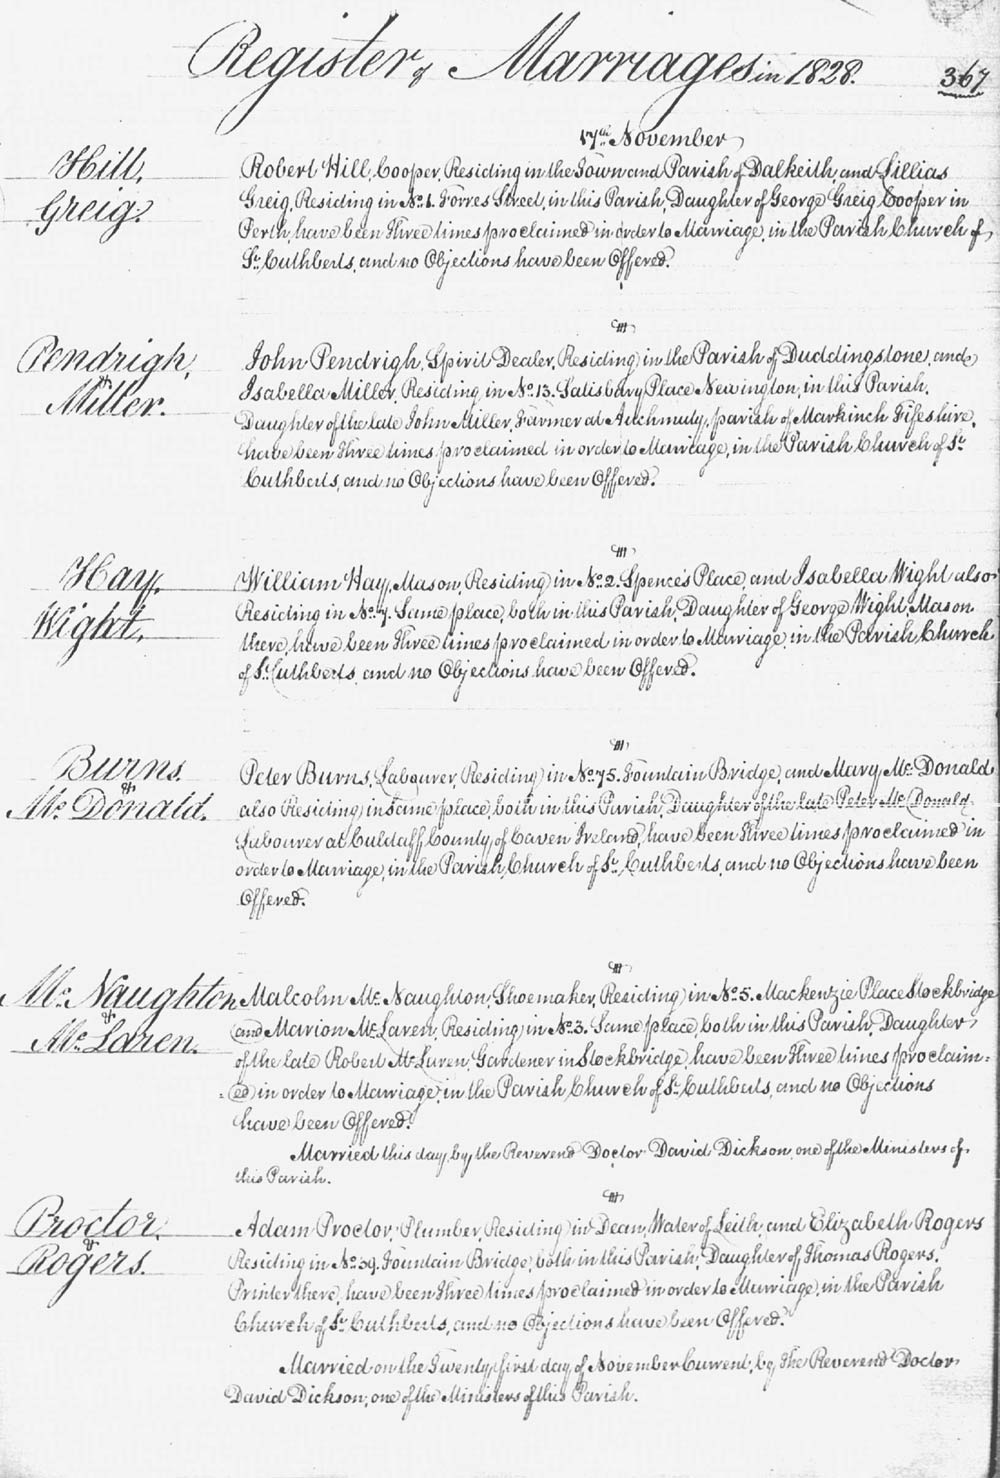 Register of Marriages in 1828.
367
17th November
Hill,
Greig.
Robert Hill, Cooper, Residing in the Town and Parish of Dalkeith, and Lillias
Greig, Residing in No. 1. Forres Street, in this Parish, Daughter of George Greig Cooper in
Perth, have been Three times proclaimed in order to Marriage, in the Parish Church of
St. Cuthberts, and no Objections have been Offered.
Pendrigh,
&
Miller.
John Pendrigh, Spirit Dealer, Residing in the Parish of Duddingstone, and
Isabella Miller, Residing in No. 13. Salisbury Place Newington, in this Parish.
Daughter of the late John Miller, Farmer at Aitchmuty, parish of Markinch Fifeshire,
have been Three times proclaimed in order to Marriage, in the Parish Church of St.
Cuthberts, and no Objections have been Offered.
Hay,
Wight.
William Hay, Mason, Residing in No. 2. Spence's Place, and Isabella Wight also
Residing in No. 7. Same place, both in this Parish, Daughter of George Wight, Mason
there, have been Three times proclaimed in order to Marriage, in the Parish Church
of St. Cuthberts, and no Objections have been Offered.
Burns.
&
Mc. Donald.
Peter Burns, Labourer, Residing in No. 75. Fountain Bridge, and Mary Mc. Donald
also Residing in same place, both in this Parish, Daughter of the late Peter Mc. Donald
Labourer at Culdaff, County of Caven Ireland, have been Three times proclaimed in
order to Marriage, in the Parish Church of St. Cuthberts, and no Objections have been
Offered.
Mc. Naughton
&
Mc. Laren.
Malcolm Mc. Naughton, Shoemaker, Residing in No. 5. Mackenzie Place Stockbridge
and Marion Mc. Laren, Residing in No. 3. Same place, both in this Parish, Daughter
of the late Robert Mc. Laren, Gardener in Stockbridge, have been Three times proclaim=
=ed in order to Marriage, in the Parish Church of St. Cuthberts, and no Objections
have been Offered.
Married this day, by the Reverend Doctor David Dickson, one of the Ministers of
this Parish.
Proctor.
&
Rogers.
Adam Proctor, Plumber, Residing in Dean, Water of Leith, and Elizabeth Rogers
Residing in No. 39. Fountain Bridge, both in this Parish, Daughter of Thomas Rogers,
Printer there, have been Three times proclaimed in order to Marriage, in the Parish
Church of St. Cuthberts, and no Objections have been Offered.
Married on the Twenty first day of November Current, by The Reverend Doctor
David Dickson, one of the Ministers of this Parish.